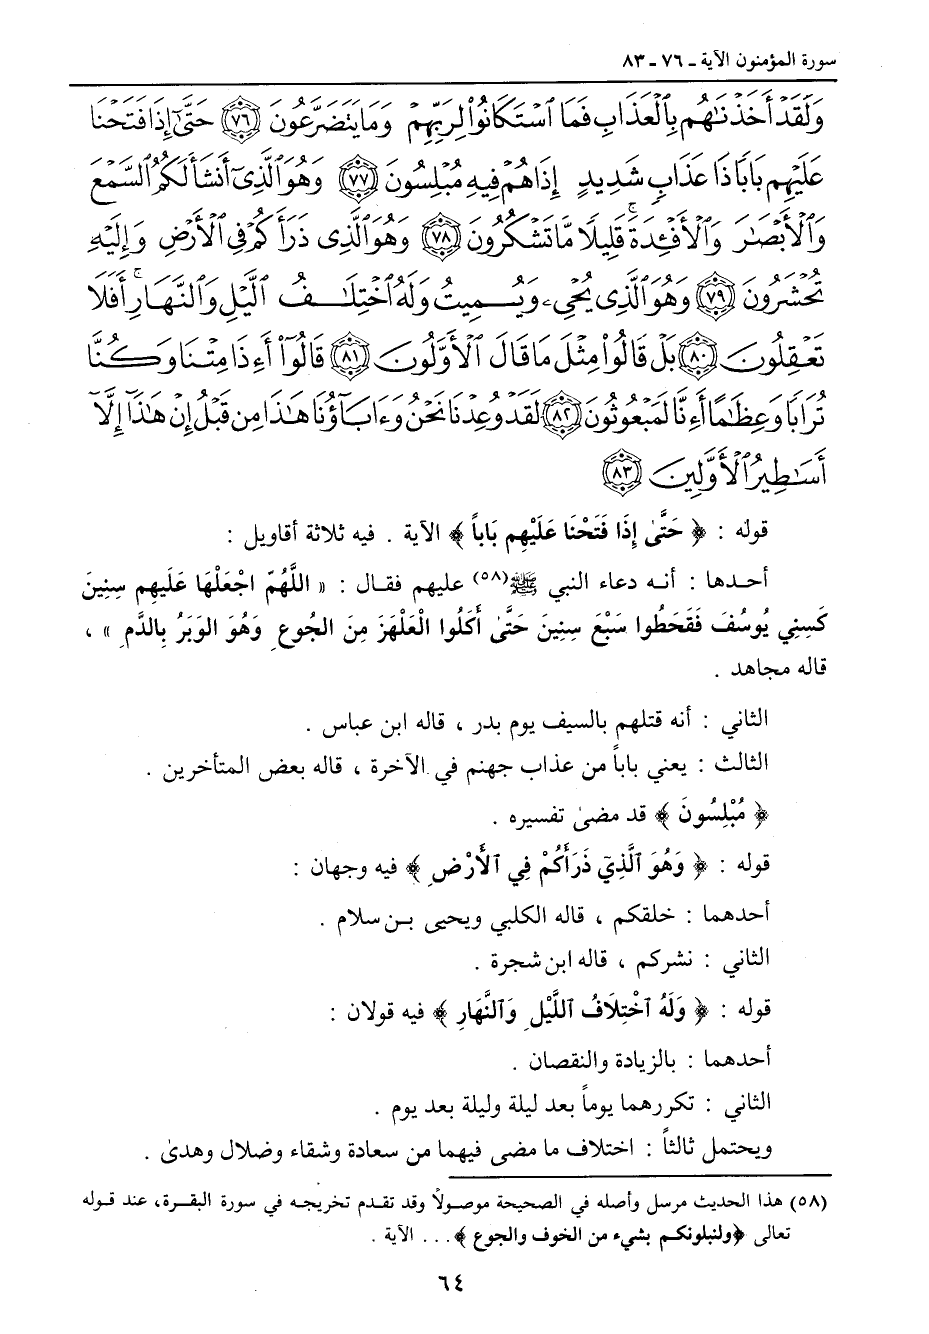 سورة المؤمنون الآية ـ ٧٦ ـ ٨٣
وَلَقَدْ أَخَذْنَٰهُم بِٱلْعَذَابِ فَمَا ٱسْتَكَانُوا۟ لِرَبِّهِمْ وَمَا يَتَضَرَّعُونَ ﴿٧٦﴾ حَتَّىٰٓ إِذَا فَتَحْنَا
عَلَيْهِم بَابًا ذَا عَذَابٍ شَدِيدٍ إِذَا هُمْ فِيهِ مُبْلِسُونَ ﴿٧٧﴾ وَهُوَ ٱلَّذِىٓ أَنشَأَ لَكُمُ ٱلسَّمْعَ
وَٱلْأَبْصَٰرَ وَٱلْأَفْـِٔدَةَ ۚ قَلِيلًا مَّا تَشْكُرُونَ ﴿٧٨﴾ وَهُوَ ٱلَّذِى ذَرَأَكُمْ فِى ٱلْأَرْضِ وَإِلَيْهِ
تُحْشَرُونَ ﴿٧٩﴾ وَهُوَ ٱلَّذِى يُحْىِۦ وَيُمِيتُ وَلَهُ ٱخْتِلَٰفُ ٱلَّيْلِ وَٱلنَّهَارِ ۚ أَفَلَا
تَعْقِلُونَ ﴿٨٠﴾ بَلْ قَالُوا۟ مِثْلَ مَا قَالَ ٱلْأَوَّلُونَ ﴿٨١﴾ قَالُوٓا۟ أَءِذَا مِتْنَا وَكُنَّا
تُرَابًا وَعِظَٰمًا أَءِنَّا لَمَبْعُوثُونَ ﴿٨٢﴾ لَقَدْ وُعِدْنَا نَحْنُ وَءَابَآؤُنَا هَٰذَا مِن قَبْلُ إِنْ هَٰذَآ إِلَّآ
أَسَٰطِيرُ ٱلْأَوَّلِينَ ﴿٨٣﴾
قوله : ﴿ حَتَّىٰ إِذَا فَتَحْنَا عَلَيْهِم بَاباً ﴾ الآية . فيه ثلاثة أقاويل :
أحدها : أنه دعاء النبي ﷺ(٥٨) عليهم فقال : « اللَّهُمّ اجْعَلْهَا عَلَيهِم سِنِينَ
كَسِنِي يُوسُفَ فَقَحَطُوا سَبْعَ سِنِينَ حَتَّىٰ أَكَلُوا الْعَلْهَزَ مِنَ الجُوعِ وَهُوَ الوَبَرُ بِالدَّمِ » ،
قاله مجاهد .
الثاني : أنه قتلهم بالسيف يوم بدر ، قاله ابن عباس .
الثالث : يعني باباً من عذاب جهنم في الآخرة ، قاله بعض المتأخرين .
﴿ مُبْلِسُونَ ﴾ قد مضىٰ تفسيره .
قوله : ﴿ وَهُوَ ٱلَّذِيٓ ذَرَأَكُمْ فِي ٱلأَرْضِ ﴾ فيه وجهان :
أحدهما : خلقكم ، قاله الكلبي ويحيى بن سلام .
الثاني : نشركم ، قاله ابن شجرة .
قوله : ﴿ وَلَهُ ٱخْتِلَافُ اللَّيْلِ وَٱلنَّهَارِ ﴾ فيه قولان :
أحدهما : بالزيادة والنقصان .
الثاني : تكررهما يوماً بعد ليلة وليلة بعد يوم .
ويحتمل ثالثاً : اختلاف ما مضى فيهما من سعادة وشقاء وضلال وهدىٰ .
(٥٨) هذا الحديث مرسل وأصله في الصحيحة موصولاً وقد تقدم تخريجه في سورة البقرة، عند قوله
تعالى ﴿ولنبلونكم بشيء من الخوف والجوع ﴾... الآية .
٦٤